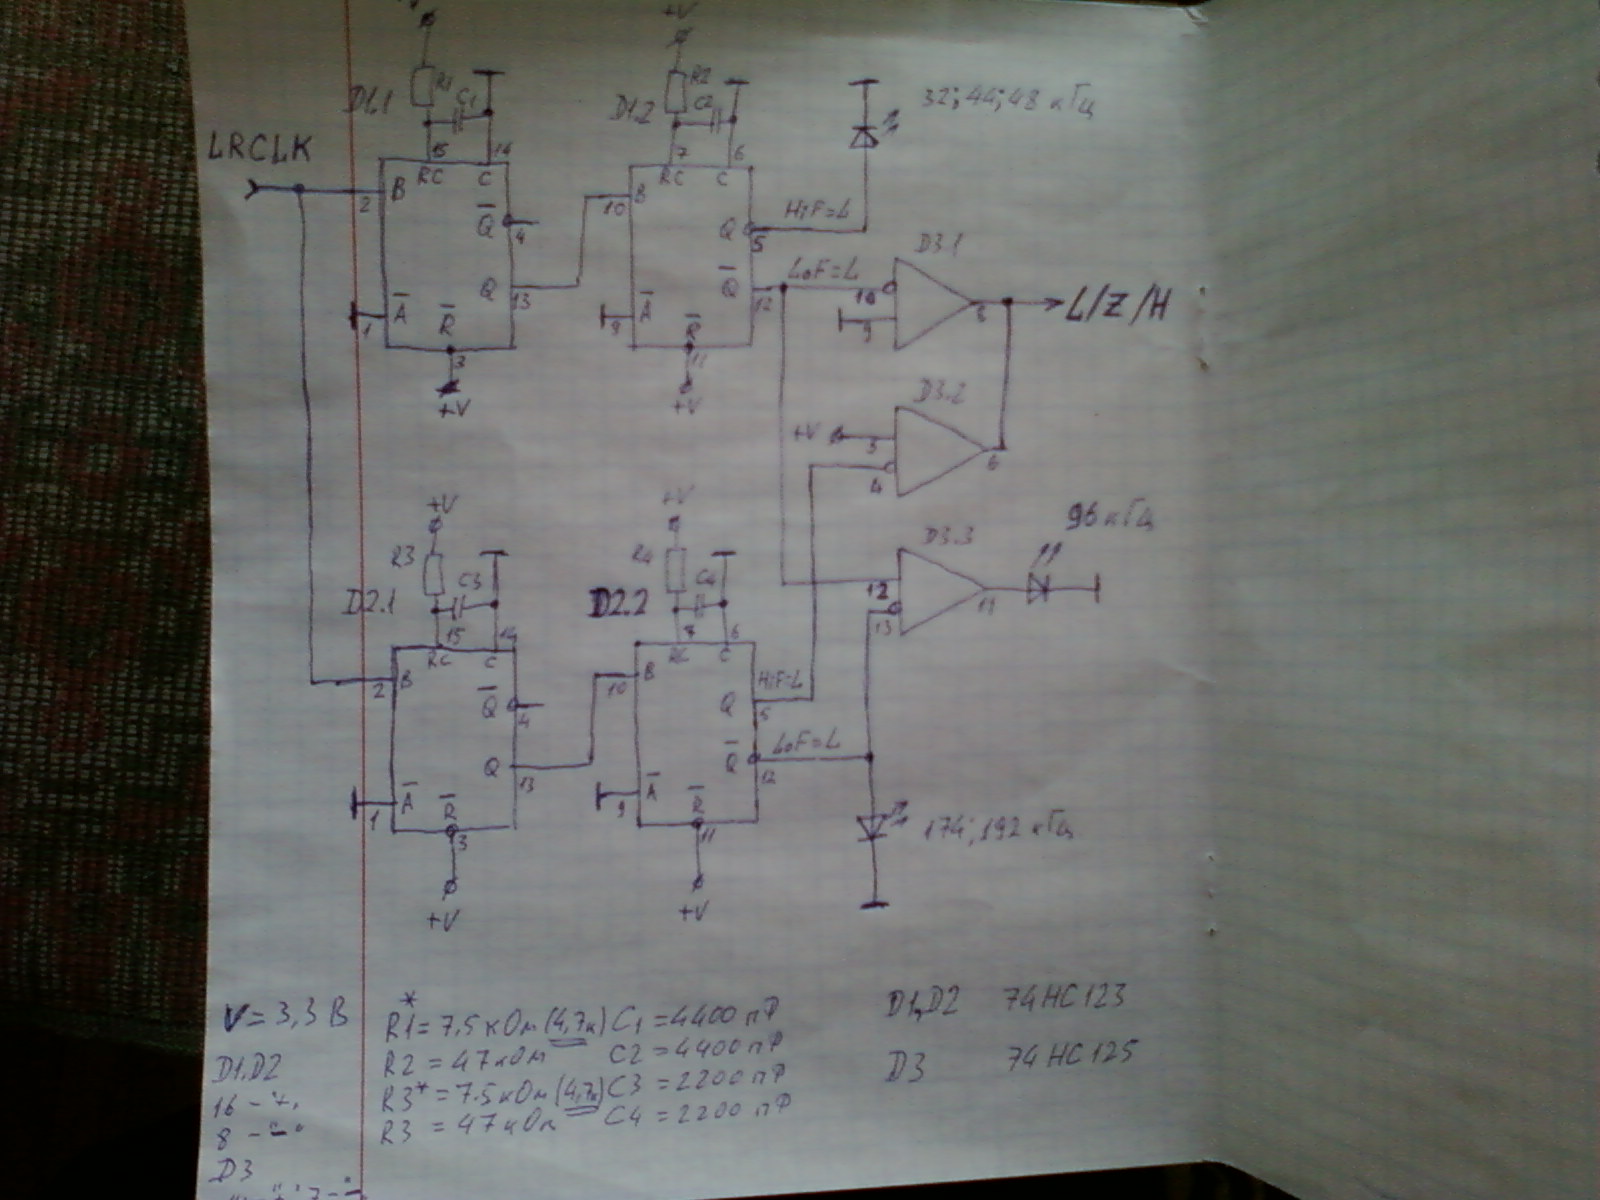 +V
R1
C1
D1.1
15
14
RC
C
LRCLK
2
B
Q̅
4
Q
13
1
A̅
R̅
3
+V
R2
C2
D1.2
7
6
RC
C
10
B
Q
5
HiF=L
Q̅
12
LoF=L
9
A̅
R̅
11
+V
32; 44; 48 кГц
D3.1
10
9
8
L/Z/H
D3.2
+V
5
4
6
D3.3
12
13
11
96 кГц
+V
R3
C3
D2.1
15
14
RC
C
2
B
Q̅
4
Q
13
1
A̅
R̅
3
+V
+V
R4
C4
D2.2
7
6
RC
C
10
B
HiF=L
Q
5
Q̅
LoF=L
12
9
A̅
R̅
11
+V
174; 192 кГц
V = 3,3 В
D1,D2
16 - "+"
8 - "-"
D3
R1* = 7.5 кОм (4,7к) C1 = 4400 пФ
R2 = 47 кОм C2 = 4400 пФ
R3* = 7.5 кОм (4,7к) C3 = 2200 пФ
R3 = 47 кОм C4 = 2200 пФ
D1,D2 74HC123
D3 74HC125